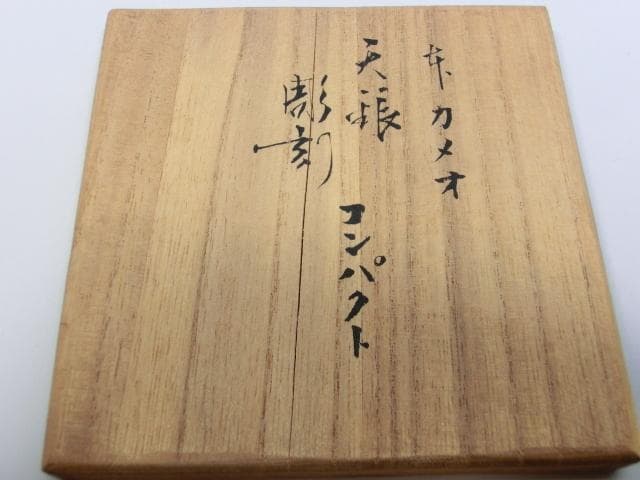 本カメオ
天張
彫刻
コンパクト